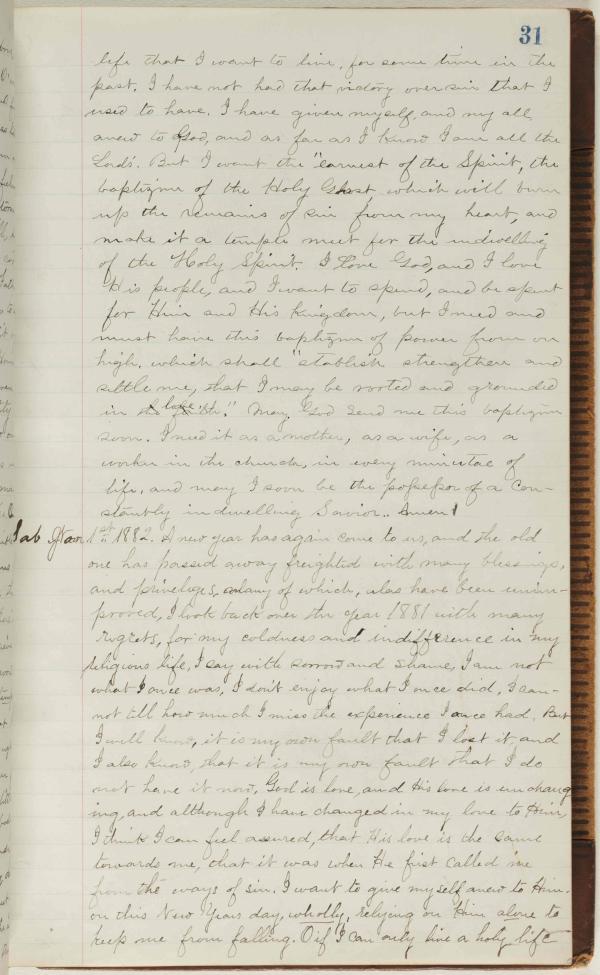 31
life that I want to live, for some time in the
past. I have not had that victory over sin that I
used to have. I have given myself, and my all
anew to God, and as far as I know I am all the
Lords'. But I want the "earnest of the Spirit, the
baptizm of the Holy Ghost which will burn
up the remains of sin from my heart, and
make it a temple meet for the indwelling
of the Holy Spirit. I love God, and I love
His people, and I want to spend, and be spent
for Him and His kingdom, but I need and
must have this baptizm of power from on
high, which shall "establish strengthen and
settle me, that I may be rooted and grounded
in love." May God send me this baptizm
soon. I need it as a mother, as a wife, as a
worker in the church, in every minutae of
life, and may I soon be the possessor of a con-
stantly indwelling Savior.. Amen!
Sab 1st 1882. A new year has again come to us, and the old
one has passed away freighted with many blessings,
and priveleges, many of which, alas have been unim-
proved, I look back over the year 1881 with many
regrets, for my coldness and indifference in my
religious life, I say with sorrow and shame, I am not
what I once was, I don't enjoy what I once did, I can-
not tell how much I miss the experience I once had, But
I well know, it is my own fault that I lost it, and
I also know, that it is my own fault that I do
not have it now, God is love, and His love is unchang
ing, and although I have changed in my love to Him,
I think I can feel assured, that His love is the same
towards me, that it was when He first called me
from the ways of sin. I want to give myself anew to Him.
on this New Years day, wholly, relying on Him alone to
keep me from falling. O if I can only live a holy life